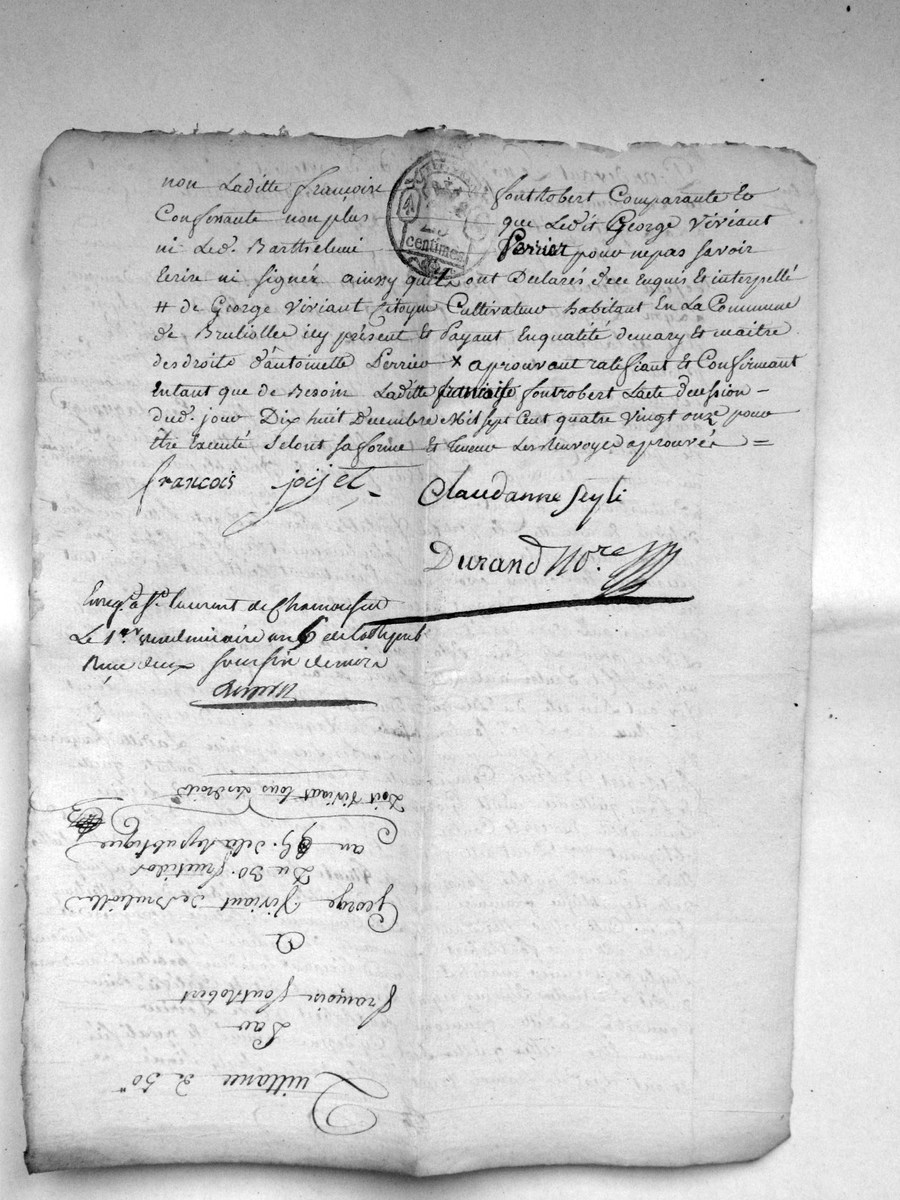 non Laditte françoise fontrobert Comparante Et
Confinante non plus que Ledit George Viviant
ni Led. Barthelemi Perrier pour ne pas savoir
Ecrire ni signer ainssy quils ont Declarés dece Enquis Et interpellé
# de George Viviant Citoyen Cultivateur habitant En La Commune
de Bruliolles icy présent Et Payant Enqualité demary Et maitre
des droits d'antoinette Perrier x aprouvant ratiffiant Et Confirmant
Entant que de Besoin Laditte françoise fontrobert Lacte decession
dud. jour Dix huit Decembre Mil sept Cent quatre Vingt onze pour
Etre Executé Selont sa forme Et teneur Les Renvoyes aprouvés =
4
centimes
francois jojet
Claudanne Seyli
Durand No.re
Enreg. a St. laurent de Chamousset
Le 1.er vendemiaire an 6 de la
Reçu deux
Quittance de 50
Par
françoise fontrobert
a
George Viviant de Brulliolle
Du 30. fructidor
an 5. de la Republique
Doit Viviant tous les droits